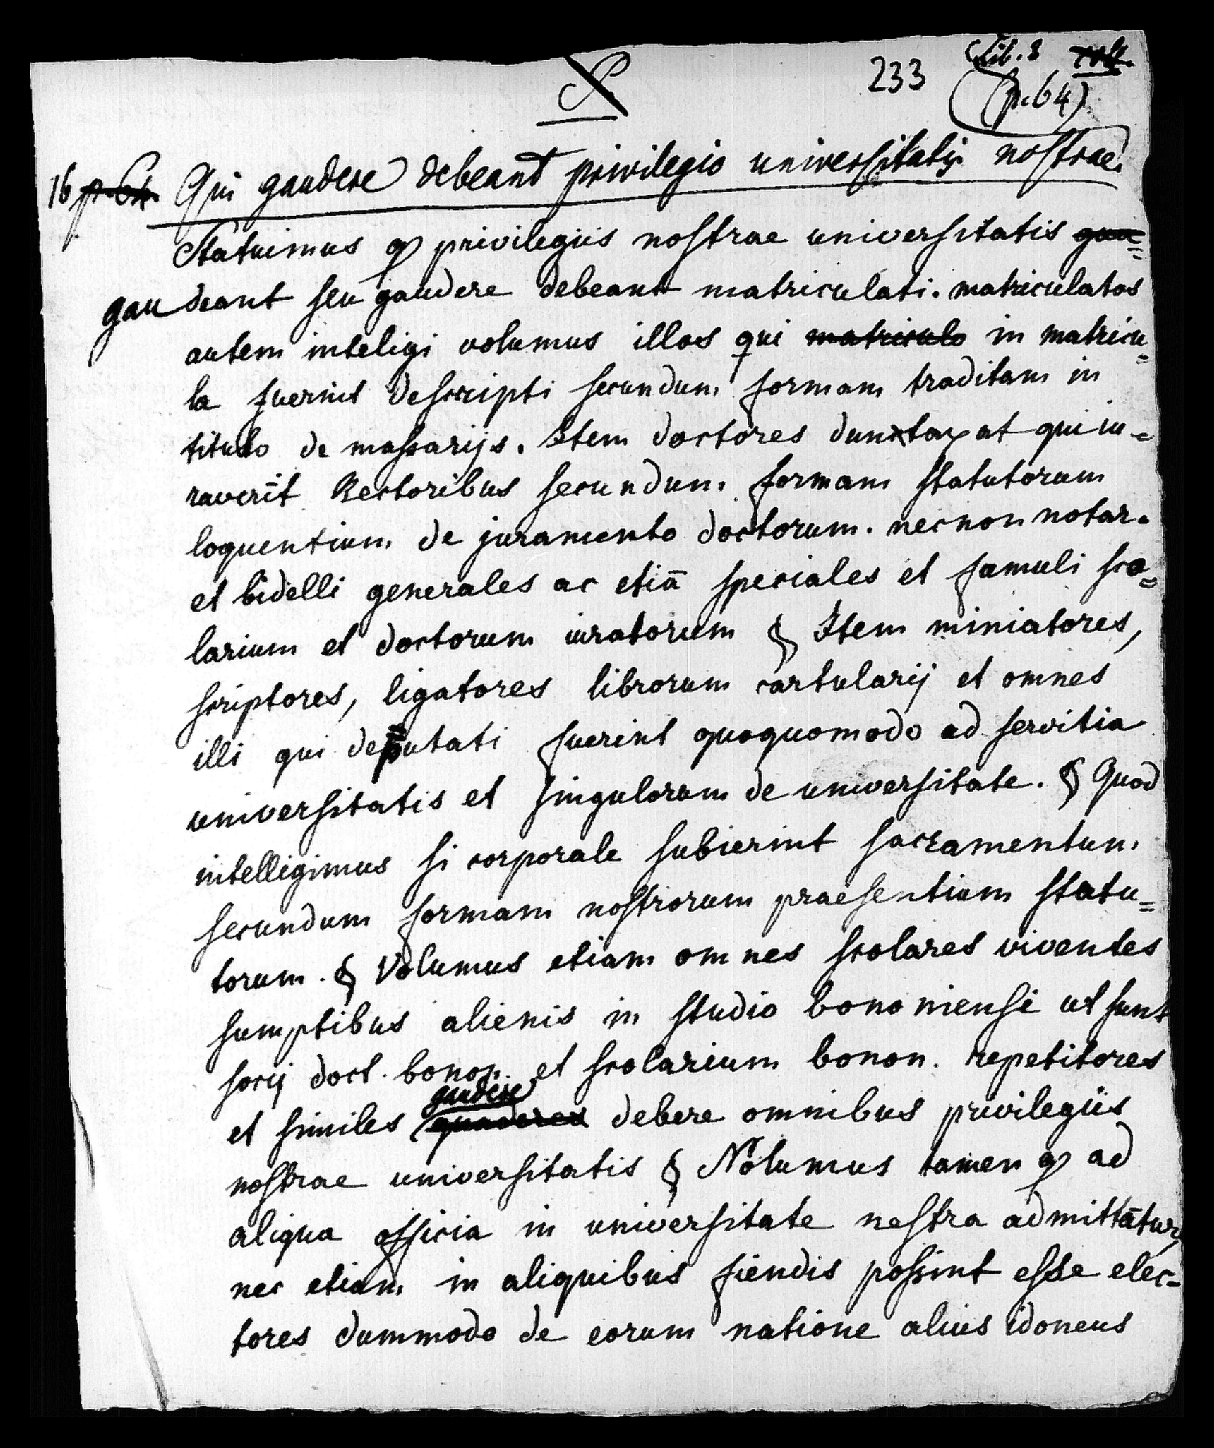 233 (Lib. 3
(p. 64)
16 p. 64. Qui gaudere debeant privilegio universitatis nostrae.
Statuimus q privilegiis nostrae universitatis gau
gaudeant seu gaudere debeant matriculati. matriculatos
autem inteligi volumus illos qui matriculo in matricu=
la fuerint descripti secundum formam traditam in
titulo de massarijs. Item doctores dunctaxat qui iu=
raverīt Rectoribus secundum formam statutorum
loquentium de juramento doctorum. necnon notar.
et bidelli generales ac etiā speciales et famuli sco=
larium et doctorum iuratorum § Item miniatores,
scriptores, ligatores librorum cartularij et omnes
illi qui deputati fuerint quoquomodo ad servitia
universitatis et singulorum de universitate. § Quod
intelligimus si corporale subierint sacramentum
secundum formam nostrorum praesentium statu=
torum. § Volumus etiam omnes scolares viventes
sumptibus alienis in studio bononiensi ut sunt
socij doct. bonon. et scolarium bonon. repetitores
et similes gaudere debere omnibus privilegiis
nostrae universitatis § Nolumus tamen q ad
aliqua officia in universitate nostra admittātur,
nec etiam in aliquibus fiendis possint esse elec=
tores dummodo de eorum natione alius idoneus